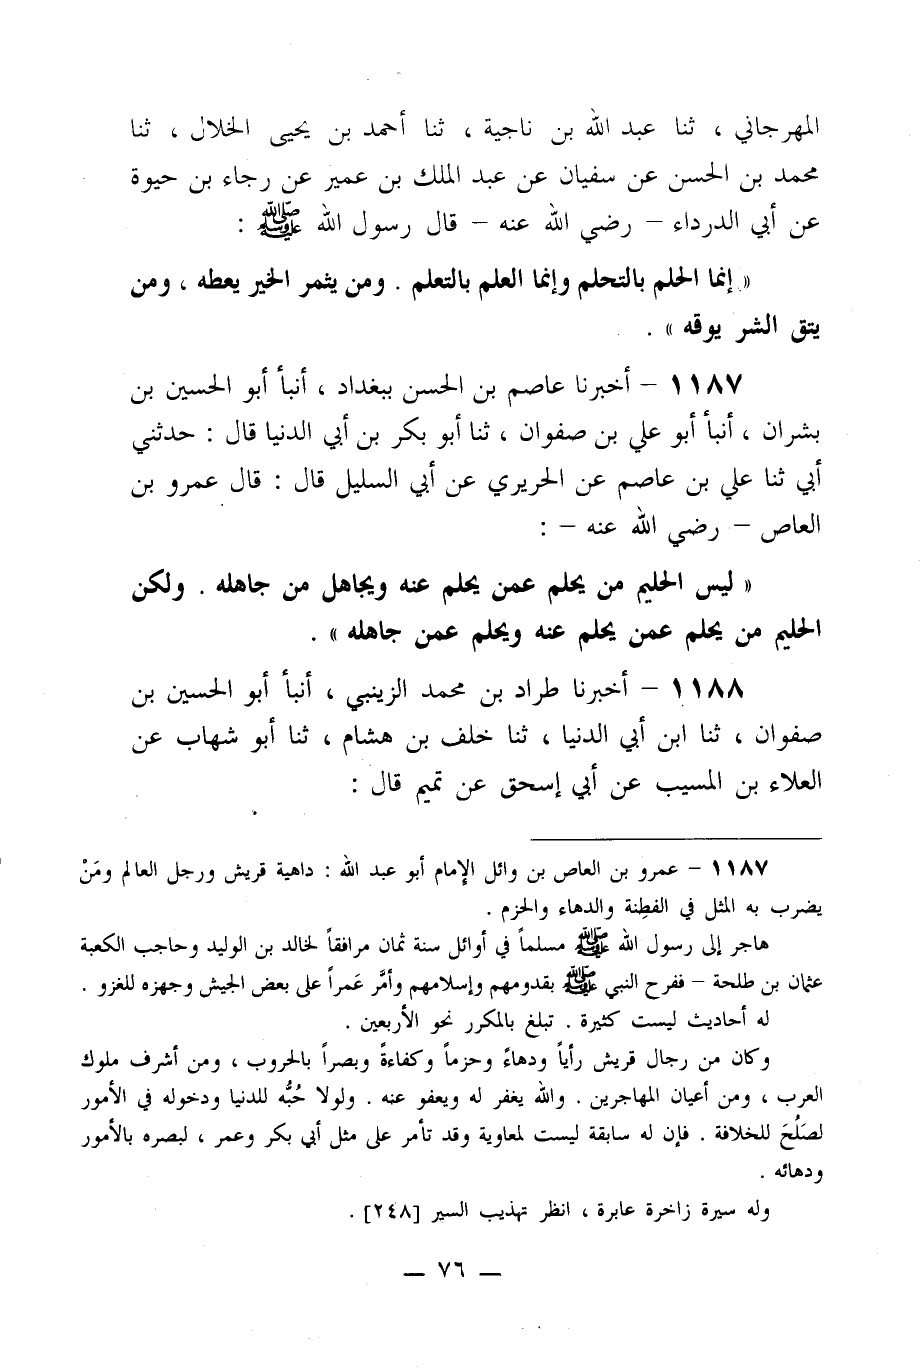 المهرجاني ، ثنا عبد الله بن ناجية ، ثنا أحمد بن يحيى الخلال ، ثنا
محمد بن الحسن عن سفيان عن عبد الملك بن عمير عن رجاء بن حيوة
عن أبي الدرداء – رضي الله عنه – قال رسول الله ﷺ :
« إنما الحلم بالتحلم وإنما العلم بالتعلم . ومن يثمر الخير يعطه ، ومن
يتق الشر يوقه » .
١١٨٧ – أخبرنا عاصم بن الحسن ببغداد ، أنبأ أبو الحسين بن
بشران ، أنبأ أبو علي بن صفوان ، ثنا أبو بكر بن أبي الدنيا قال : حدثني
أبي ثنا علي بن عاصم عن الحريري عن أبي السليل قال : قال عمرو بن
العاص – رضي الله عنه – :
« ليس الحليم من يحلم عمن يحلم عنه ويجاهل من جاهله . ولكن
الحليم من يحلم عمن يحلم عنه ويحلم عمن جاهله » .
١١٨٨ – أخبرنا طراد بن محمد الزينبي ، أنبأ أبو الحسين بن
صفوان ، ثنا ابن أبي الدنيا ، ثنا خلف بن هشام ، ثنا أبو شهاب عن
العلاء بن المسيب عن أبي إسحق عن تميم قال :
١١٨٧ – عمرو بن العاص بن وائل الإمام أبو عبد الله : داهية قريش ورجل العالم ومَنْ
يضرب به المثل في الفطنة والدهاء والحزم .
هاجر إلى رسول الله ﷺ مسلماً في أوائل سنة ثمان مرافقاً لخالد بن الوليد وحاجب الكعبة
عثمان بن طلحة – ففرح النبي ﷺ بقدومهم وإسلامهم وأمَّر عَمراً على بعض الجيش وجهزه للغزو .
له أحاديث ليست كثيرة . تبلغ بالمكرر نحو الأربعين .
وكان من رجال قريش رأياً ودهاءً وحزماً وكفاءةً وبصراً بالحروب ، ومن أشرف ملوك
العرب ، ومن أعيان المهاجرين . والله يغفر له ويعفو عنه . ولولا حُبُّه للدنيا ودخوله في الأمور
لصَلُحَ للخلافة . فإن له سابقة ليست لمعاوية وقد تأمر على مثل أبي بكر وعمر ، لبصره بالأمور
ودهائه .
وله سيرة زاخرة عابرة ، انظر تهذيب السير [٢٤٨] .
— ٧٦ —